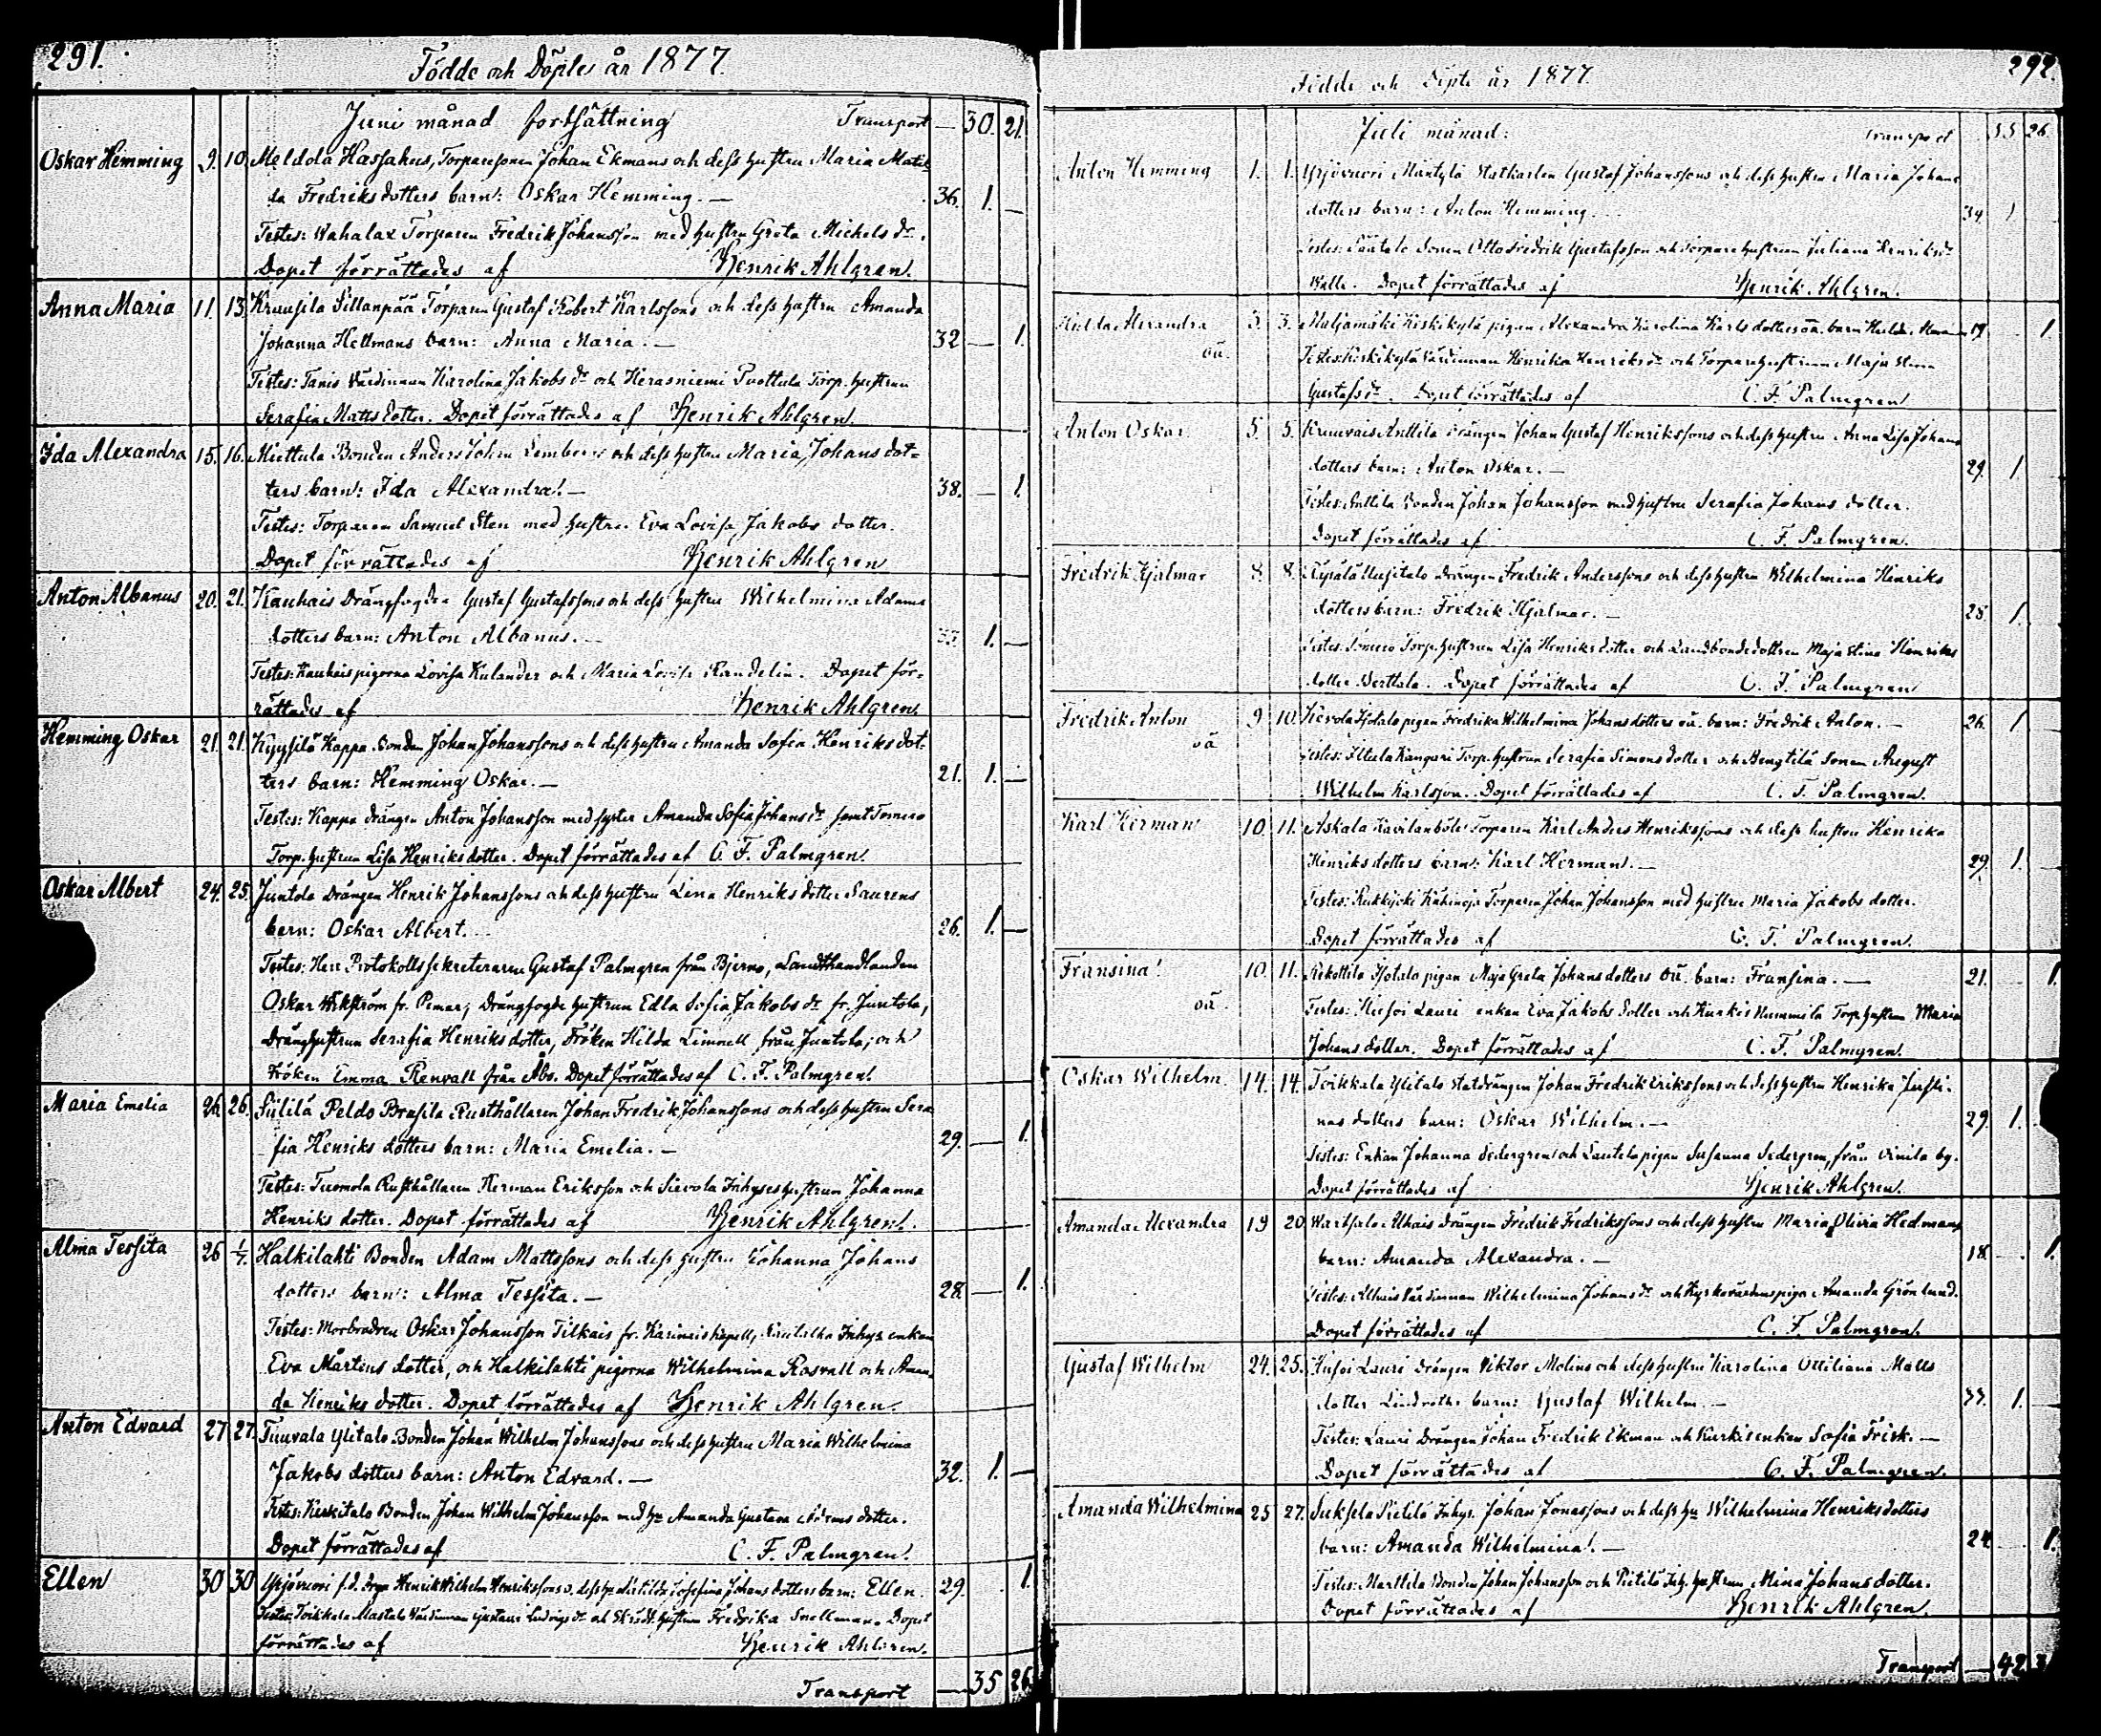 291.
Födde och Döpte år 1877.
Juni månad fortsättning Transport — 30. 21.
Oskar Hemming 9. 10. Meldola Hassahus, Torparesonen Johan Ekmans och dess hustru Maria Matil-
da Fredriks dotters barn: Oskar Hemming. — 36. 1. —
Testes: Wahalax Torparen Fredrik Johansson med hustru Greta Michels dr.
Dopet förrättades af Henrik Ahlgren.
Anna Maria 11. 13. Kruusila Sillanpää Torparen Gustaf Robert Karlssons och dess hustru Amanda
Johanna Hellmans barn: Anna Maria. — 32 — 1.
Testes: Tanis Värdinnan Karolina Jakobs dr och Herasniemi Puottula Torp. hustrun
Serafia Matts dotter. Dopet förrättades af Henrik Ahlgren.
Ida Alexandra 15. 16. Miettula Bonden Anders John Lembergs och dess hustru Maria Johans dot-
ters barn: Ida Alexandra. — 38. — 1.
Testes: Torparen Samuel Sten med hustru Eva Lovisa Jakobs dotter.
Dopet förrättades af Henrik Ahlgren
Anton Albanus 20. 21. Kauhais Drängfogden Gustaf Gustafssons och dess hustru Wilhelmina Adams
dotters barn: Anton Albanus. — 33. 1. —
Testes: Kauhais pigorna Lovisa Kulander och Maria Lovisa Randelin. Dopet för-
rättades af Henrik Ahlgren.
Hemming Oskar 21. 21. Kyysilä Kappa Bonden Johan Johanssons och dess hustru Amanda Sofia Henriks dot-
ters barn: Hemming Oskar. — 21. 1. —
Testes: Kappa drängen Anton Johansson med syster Amanda Sofia Johans dr samt Somero
Torp. hustrun Lisa Henriks dotter. Dopet förrättades af C. F. Palmgren.
Oskar Albert 24. 25. Juntola Drängen Henrik Johanssons och dess hustru Lena Henriks dotter Laurens
barn: Oskar Albert. 26. 1. —
Testes: Herr Protokollssekreteraren Gustaf Palmgren från Bjerno, Landthandlanden
Oskar Wikström fr. Pemar, Drängfogde hustrun Edla Sofia Jakobs dr fr. Juntola,
Dränghustrun Serafia Henriks dotter, Fröken Hilda Limnell från Juntola, och
Fröken Emma Renvall från Åbo. Dopet förrättades af C. F. Palmgren.
Maria Emelia 26. 26. Siililä Peldo Prasila Rusthållaren Johan Fredrik Johanssons och dess hustru Sera
fia Henriks dotters barn: Maria Emelia. — 29. — 1.
Testes: Tuomola Rusthållaren Herman Eriksson och Sievola Inhyseshustrun Johanna
Henriks dotter. Dopet förrättades af Henrik Ahlgren.
Alma Tessita 26 1/7. Halkilahti Bonden Adam Mattssons och dess hustru Johanna Johans
dotters barn: Alma Tessita. — 28. — 1.
Testes: Morbrodren Oskar Johansson Tilkais fr. Karinais kapell, Inhys. enkan
Eva Mårtens dotter, och Halkilahti pigorna Wilhelmina Rosvall och Aman-
da Henriks dotter. Dopet förrättades af Henrik Ahlgren.
Anton Edvard 27 27. Tuuvala Ylitalo Bonden Johan Wilhelm Johanssons och dess hustru Maria Wilhelmina
Jakobs dotters barn: Anton Edvard. — 32. 1. —
Testes: Keskitalo Bonden Johan Wilhelm Johansson med hu Amanda Gustava dotter.
Dopet förrättades af C. F. Palmgren.
Ellen 30 30 Yrjövuori f.d. Henrik Wilhelm Henrikssons o. dess hu Matilda Josefina Johans dotters barn: Ellen. 29. 1.
Testes: Toikkala Mastala Värdinnan Gustava Ludvigs dr och Skrädd. hustrun Fredrika Snellman. Dopet
förrättades af Henrik Ahlgren.
Transport — 35 26
292.
Födde och Döpte år 1877.
Juli månad: Transport 35 26
Anton Hemming 1. 1. Yrjövuori Mäntylä Statkarlen Gustaf Johanssons och dess hustru Maria Johans
dotters barn: Anton Hemming. 34 1
Testes: Säätalo Sonen Otto Fredrik Gustafsson och Torpare hustrun Juliana Henriks dr
Walle. Dopet förrättades af Henrik Ahlgren.
Hulda Alexandra oä. 3. 3. Maljamäki Kiskikylä pigan Alexandra Karolina Karls dotters oä. barn Hulda 19. 1.
Testes: Kiskikylä Värdinnan Henrika Henriks dr och Torparehustrun Maja Stina
Gustafs dr. Dopet förrättades af C. F. Palmgren
Anton Oskar 5. 5. Kruuvais Anttila drängen Johan Gustaf Henrikssons och dess hustru Anna Lisa Johans
dotters barn: Anton Oskar. — 29. 1.
Testes: Anttila Bonden Johan Johansson med hustru Serafia Johans dotter.
Dopet förrättades af C. F. Palmgren.
Fredrik Hjalmar 8. 8. Uusitalo drängen Fredrik Anderssons och dess hustru Wilhelmina Henriks
dotters barn: Fredrik Hjalmar. — 28. 1.
Testes: Somero Torp. hustrun Lisa Henriks dotter och Landbondedottren Maja Stina Henriks
dotter Berttala. Dopet förrättades af C. F. Palmgren
Fredrik Anton oä 9 10. Sievola Isotalo pigan Fredrika Wilhelmina Johans dotters oä. barn: Fredrik Anton. — 26. 1
Testes: Kanguri Torp. hustrun Serafia Simons dotter och Bengtilä Sonen August
Wilhelm Karlsson. Dopet förrättades af C. F. Palmgren.
Karl Herman 10 11. Askala Kavilanböle Torparen Karl Anders Henrikssons och dess hustru Henrika
Henriks dotters barn: Karl Herman. — 29. 1.
Testes: Rukkijoki Kähinoja Torparen Johan Johansson med hustru Maria Jakobs dotter.
Dopet förrättades af C. F. Palmgren.
Fransina oä 10. 11. Rekottila Isotalo pigan Maja Greta Johans dotters oä. barn: Fransina. — 21. 1.
Testes: Lauri enkan Eva Jakobs dotter och Kurkis Nummila Torp hustrun Maria
Johans dotter. Dopet förrättades af C. F. Palmgren.
Oskar Wilhelm 14. 14. Toikkala Ylitalo Statdrängen Johan Fredrik Erikssons och dess hustru Henrika Justi-
nas dotters barn: Oskar Wilhelm. — 29. 1.
Testes: Enkan Johanna Sedergren och Lautela pigan Susanna Sedergren, från Vinila by.
Dopet förrättades af Henrik Ahlgren.
Amanda Alexandra 19 20. Wartsala Alhais Drängen Fredrik Fredrikssons och dess hustru Maria Olivia Hedmans
barn: Amanda Alexandra. — 18. 1.
Testes: Alhais Värdinnan Wilhelmina Johans dr och Kyrkovärdens piga Amanda Grönlund.
Dopet förrättades af C. F. Palmgren.
Gustaf Wilhelm 24. 25. Lauri Drängen Viktor Molins och dess hustru Karolina Ottiliana Matts
dotter Lindroths barn: Gustaf Wilhelm. — 33. 1.
Testes: Lauri Drängen Johan Fredrik Ekman och Kurkis enkan Sofia Frisk. —
Dopet förrättades af C. F. Palmgren.
Amanda Wilhelmina 25 27. Suksela Pietilä Inhys. Johan Jonassons och dess hu Wilhelmina Henriks dotters
barn: Amanda Wilhelmina. — 24 1.
Testes: Marttila Bonden Johan Johansson och Pietilä Inh. hustrun Mina Johans dotter.
Dopet förrättades af Henrik Ahlgren.
Transport — 42